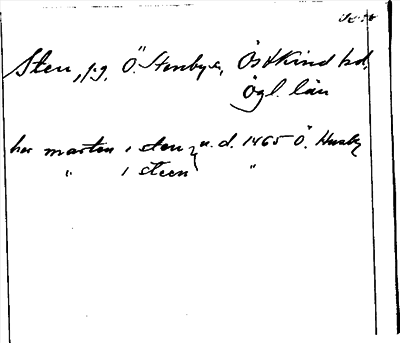 Sten, jg, Ö. Stenby sn, Östkind hd,
Ögl. län
her marten i sten } u. d. 1465 Ö. Husby
" i steen "